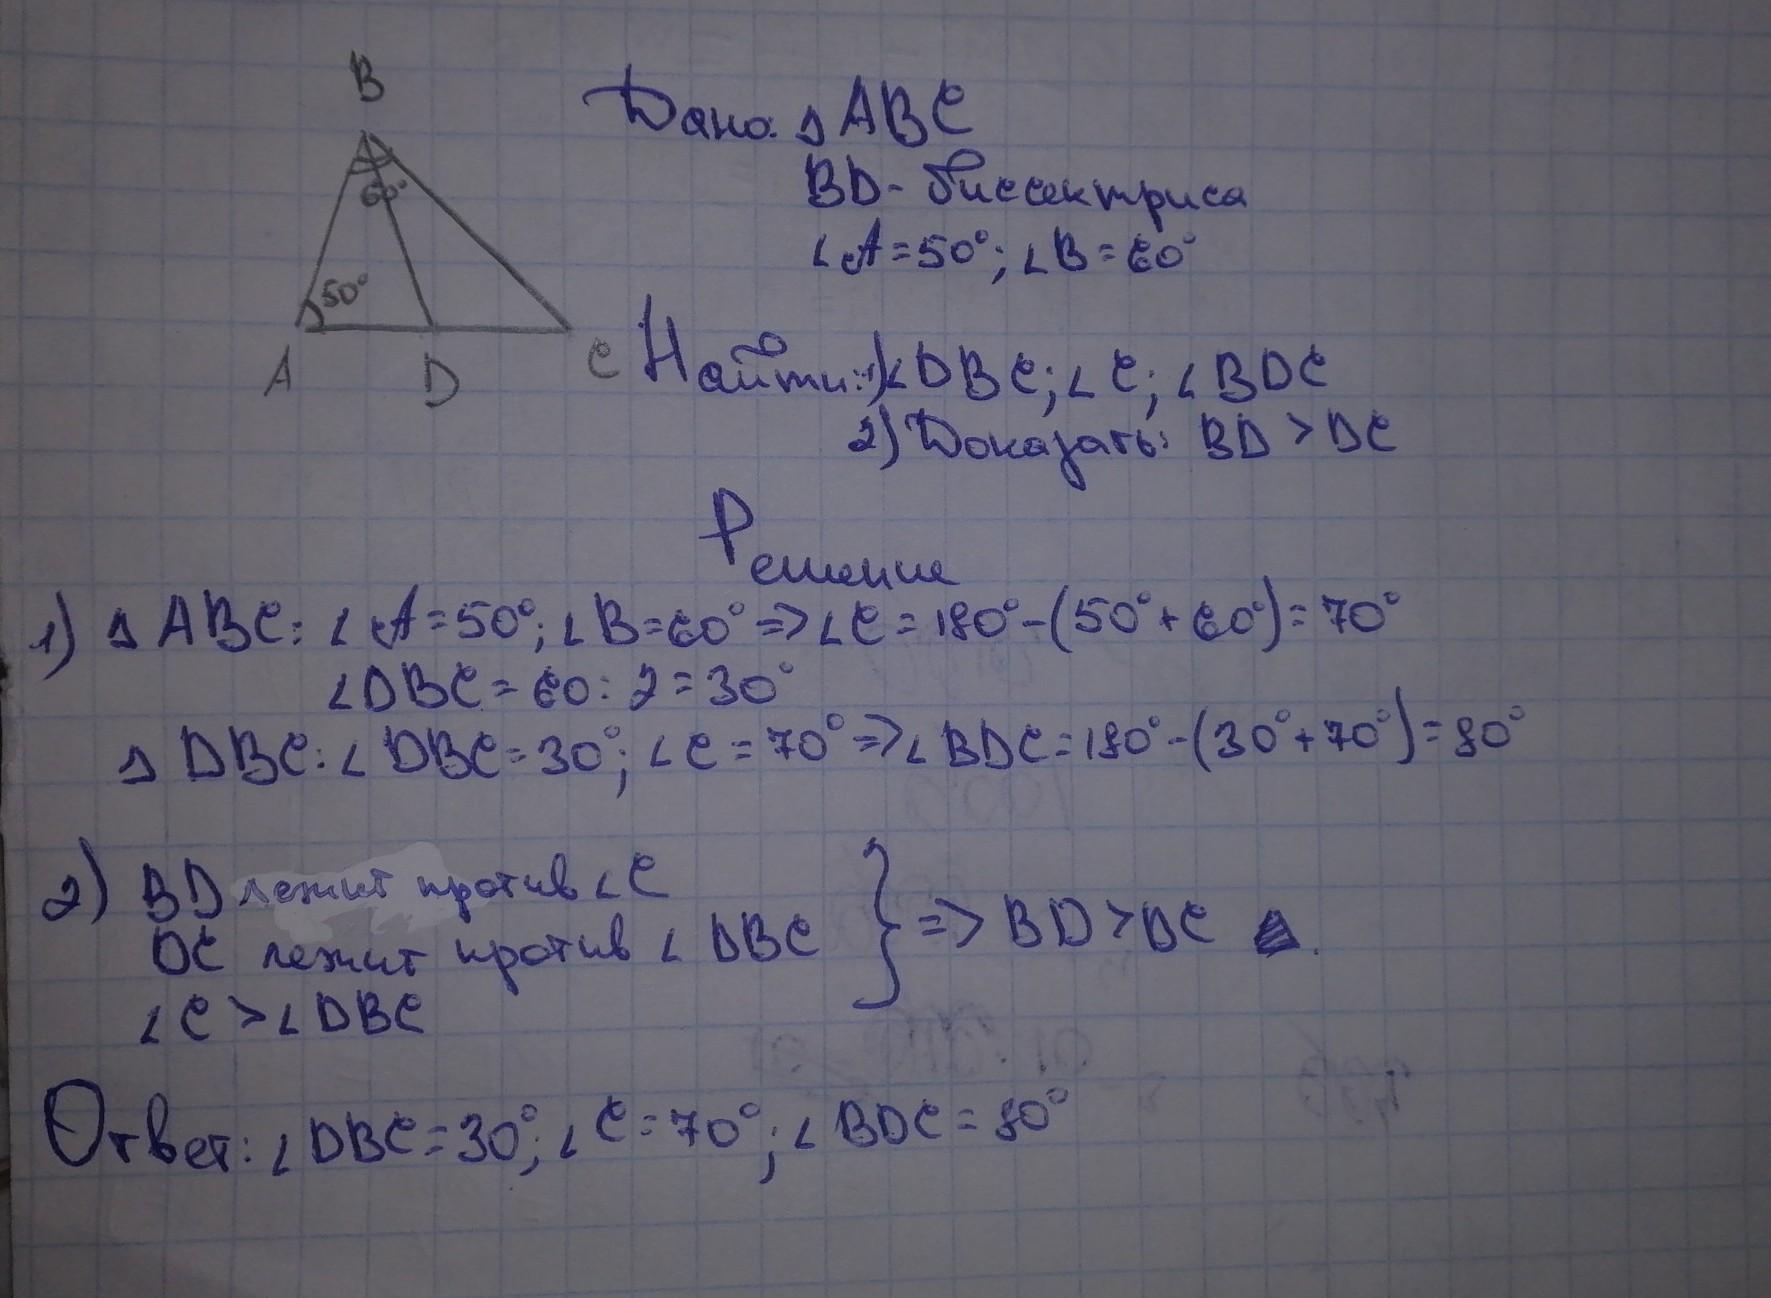 B
60°
50°
A D C
Дано: △ ABC
BD - биссектриса
∠A = 50°; ∠B = 60°
Найти: 1) ∠DBC; ∠C; ∠BDC
2) Доказать: BD > DC
Решение
1) △ ABC: ∠A = 50°; ∠B = 60° => ∠C = 180° - (50° + 60°) = 70°
∠DBC = 60 : 2 = 30°
△ DBC: ∠DBC = 30°; ∠C = 70° => ∠BDC = 180° - (30° + 70°) = 80°
2) BD лежит против ∠C
DC лежит против ∠DBC } => BD > DC
∠C > ∠DBC
Ответ: ∠DBC = 30°; ∠C = 70°; ∠BDC = 80°